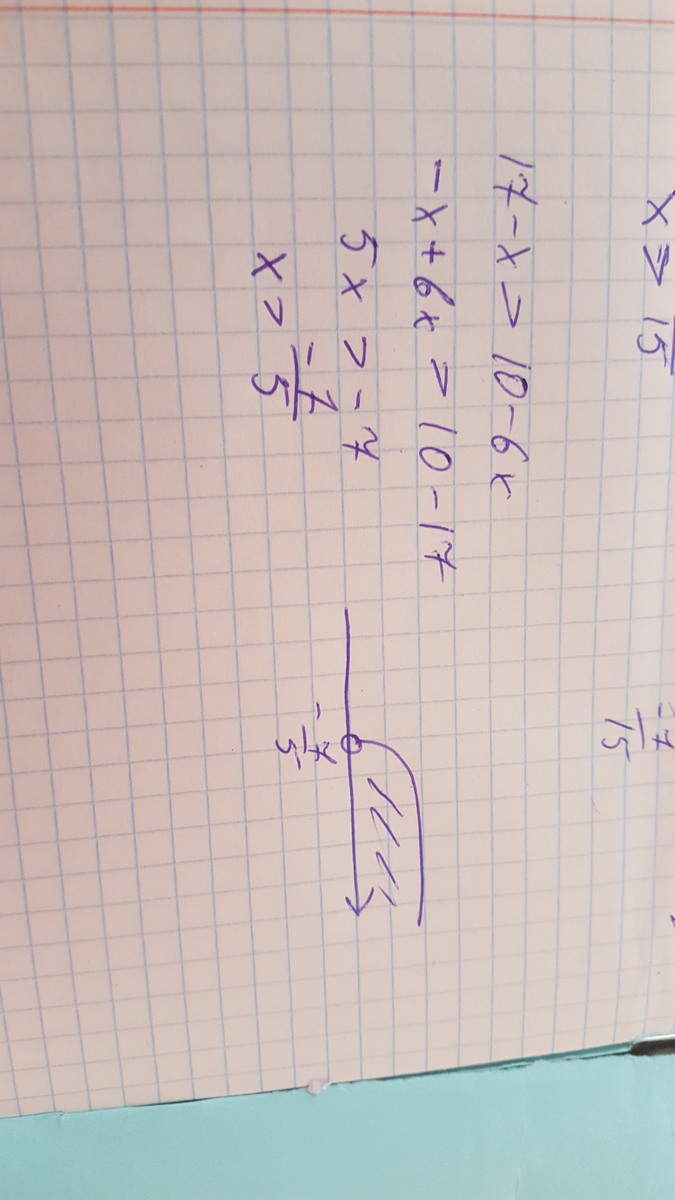 x ≥ /15
-7/15
17-x > 10-6x
-x+6x > 10-17
5x > -7
x > -7/5
-7/5